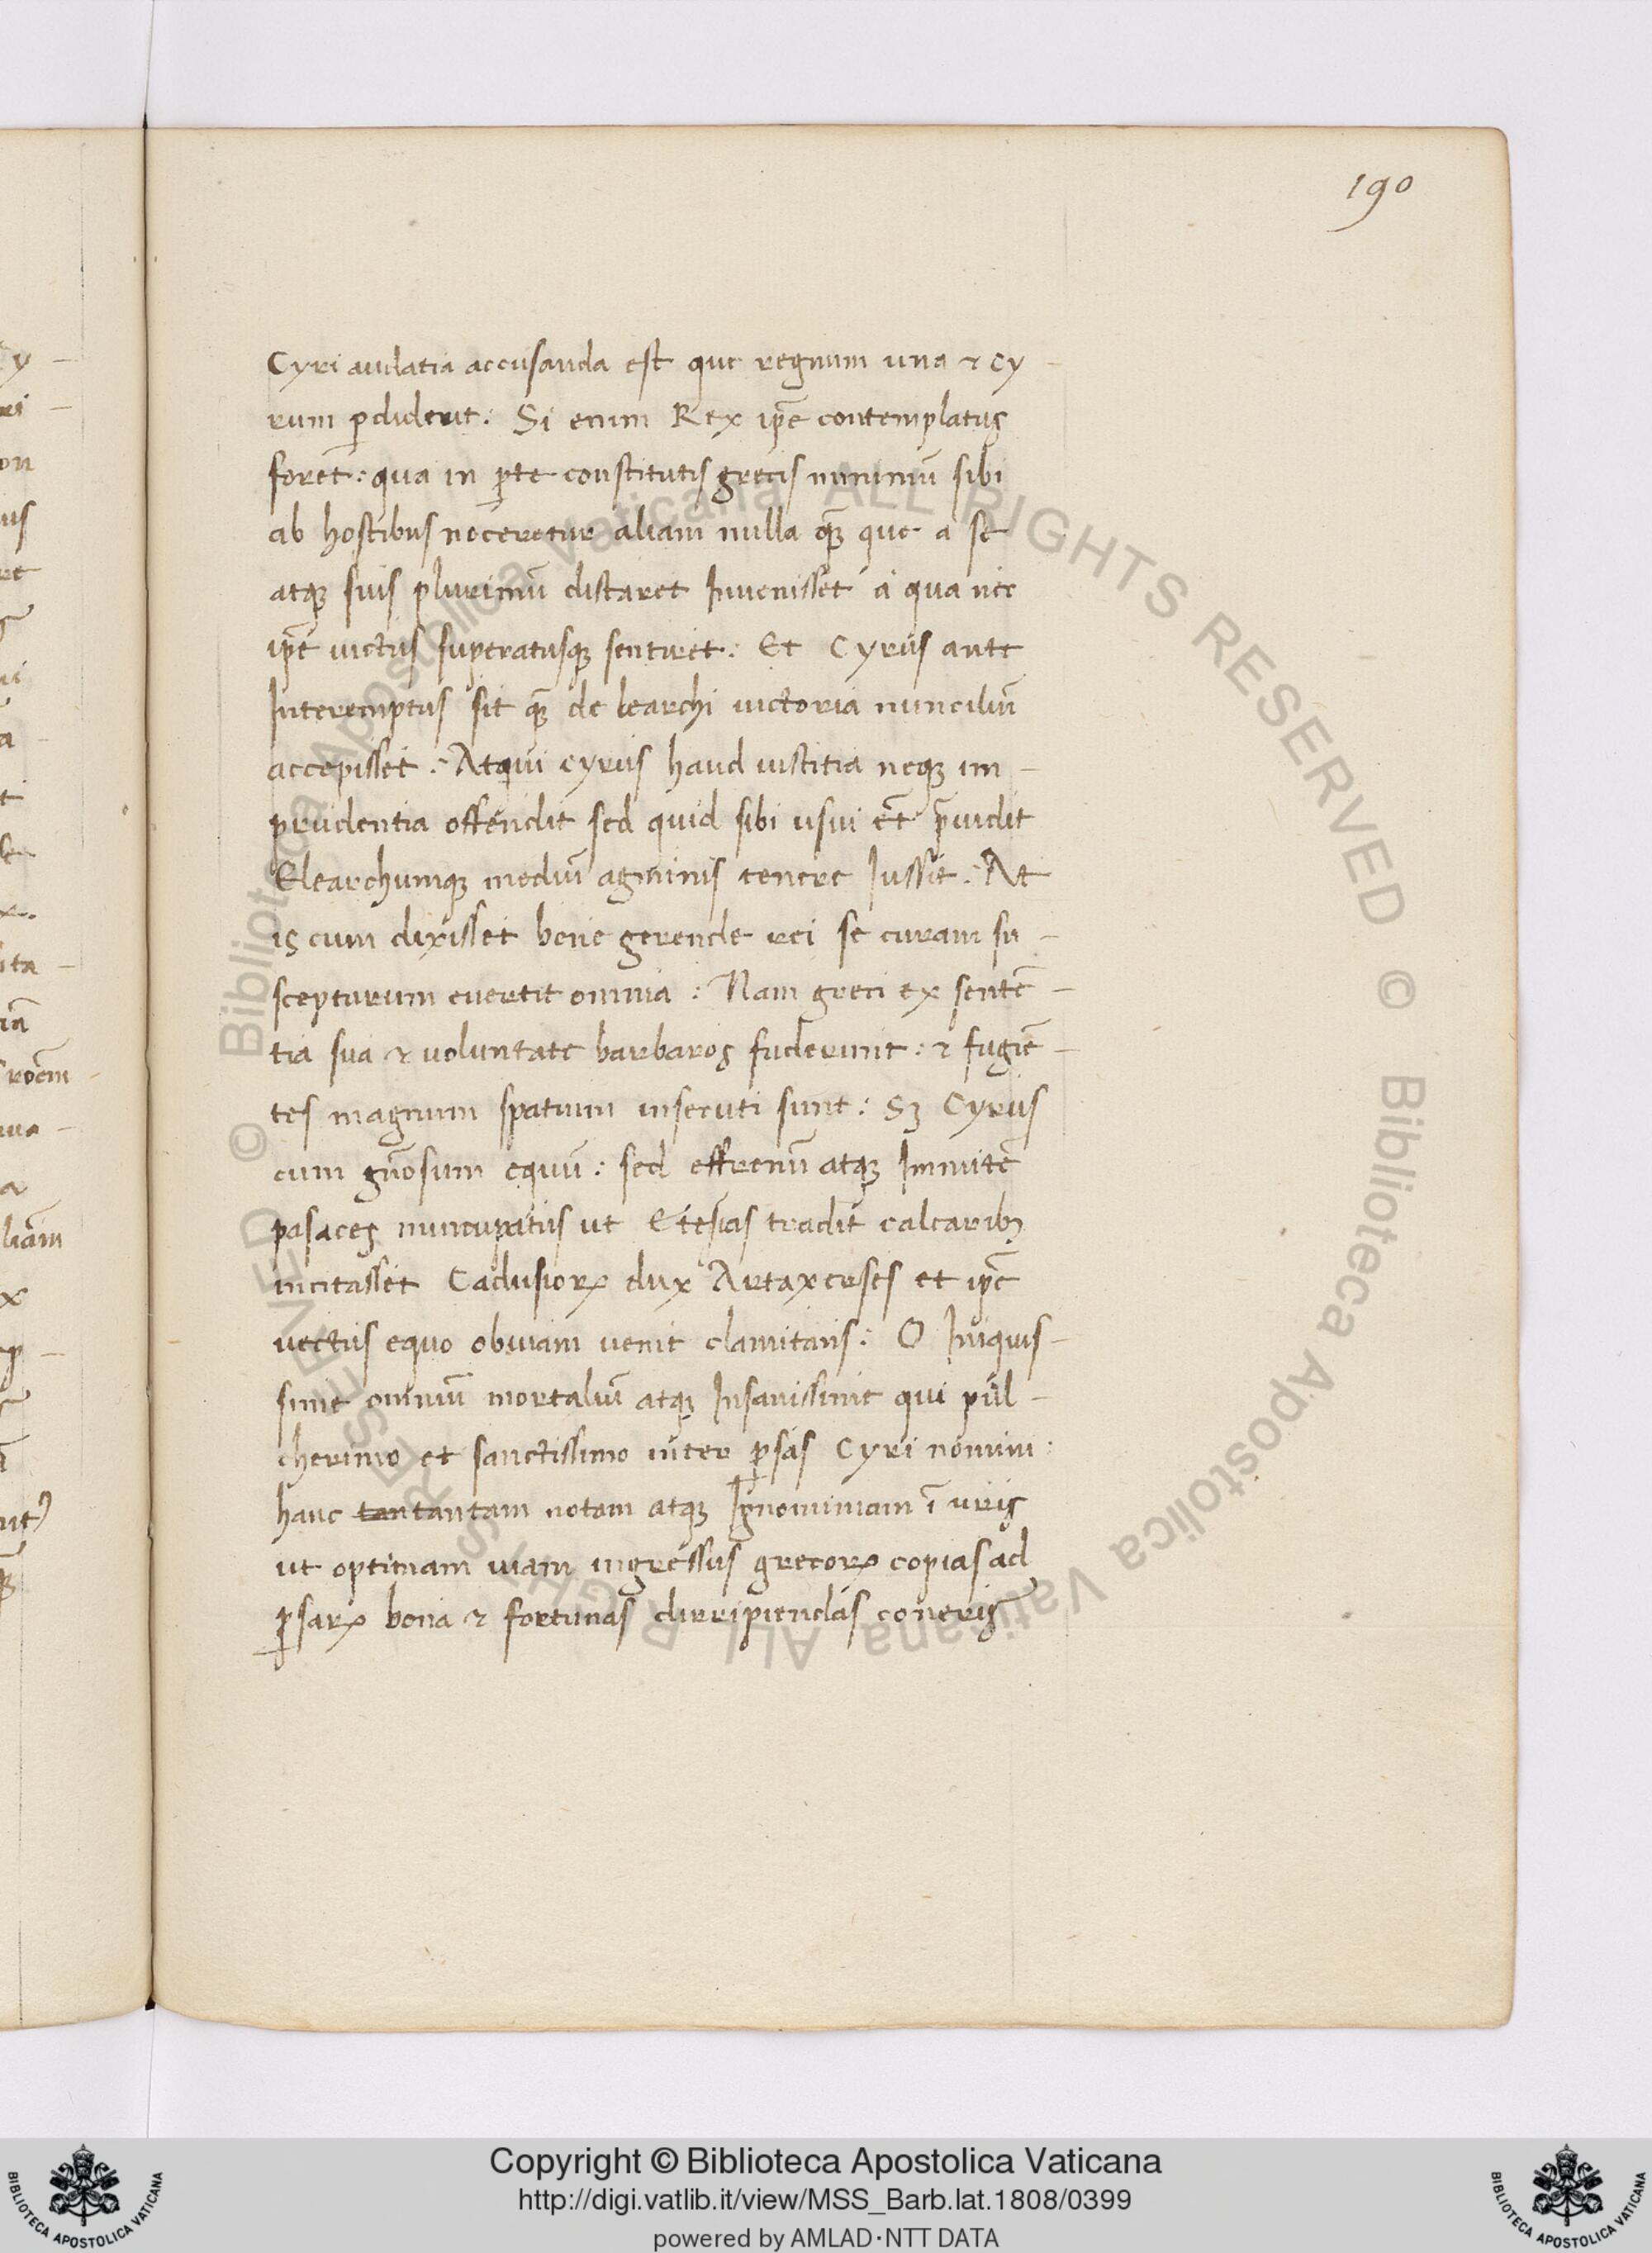 190
Cyri audatia accusanda est que regnum una & cy-
rum p̱diderit: Si enim Rex ip̄e contemplatus
foret: qua in p̱te constitutis grecis minimū sibi
ab hostibus noceretur aliam nulla qꝫ̄ que a se
atqꝫ suis plurimū distaret Invenisset a qua nec
ip̄e victus superatusqꝫ sentiret: Et Cyrus ante
Interemptus sit qꝫ̄ de learchi victoria nuncium
accepisset: Atqui cyrus haud iustitia neqꝫ im-
prudentia offendit sed quid sibi usui ēt p̄vidit
Clearchumqꝫ mediū agminis tenere Iussit: At
is cum dixisset bene gerende rei se curam su-
scepturum evertit omnia: Nam greci ex sentē-
tia sua & voluntate barbaros fuderunt: & fugiē-
tes magnum spatium insecuti sunt: Sꝫ Cyrus
cum gn̄osum equū: sed effrenū atqꝫ Immitē
pasaces nuncupatus ut Etesias tradit calcaribꝫ
incitasset Cadusioꝝ dux Artaxerses et ip̄e
vectus equo obviam venit clamitans: O Iniquis-
sime omniū mortaliū atqꝫ Insanissime qui pul-
cherimo et sanctissimo inter p̱sas Cyri nomini:
hanc tantantam notam atqꝫ Ignominiam ī uris
ut optimam viam ingressus grecoꝝ copias ad
p̱saꝝ bona & fortunas dirripiendas coneris
y -
ri -
on
us
re
a -
ita -
iā
roēm -
liām
x
© Biblioteca Apostolica Vaticana ALL RIGHTS RESERVED © Biblioteca Apostolica Vaticana ALL RIGHTS RESERVED
BIBLIOTECA APOSTOLICA VATICANA
Copyright © Biblioteca Apostolica Vaticana
http://digi.vatlib.it/view/MSS_Barb.lat.1808/0399
powered by AMLAD·NTT DATA
BIBLIOTECA APOSTOLICA VATICANA